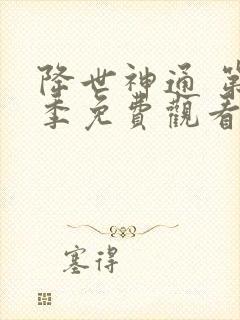 降世神通 第
季免費觀看
塞得